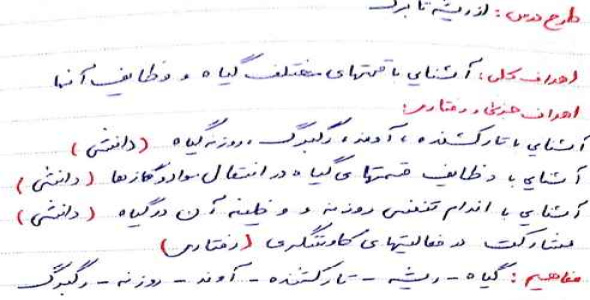 طرح درس: از ریشه تا برگ
اهداف کلی: آشنایی با قسمتهای مختلف گیاه و وظایف آنها
اهداف جزئی و رفتاری:
آشنایی با تارکشنده، آوند، رگبرگ، روزنه گیاه (دانشی)
آشنایی با وظایف قسمتهای گیاه در انتقال مواد و گازها (دانشی)
آشنایی با اندام تنفسی روزنه و وظیفه آن در گیاه (دانشی)
مشارکت در فعالیتهای کاوشگری (رفتاری)
مفاهیم: گیاه - ریشه - تارکشنده - آوند - روزنه - رگبرگ